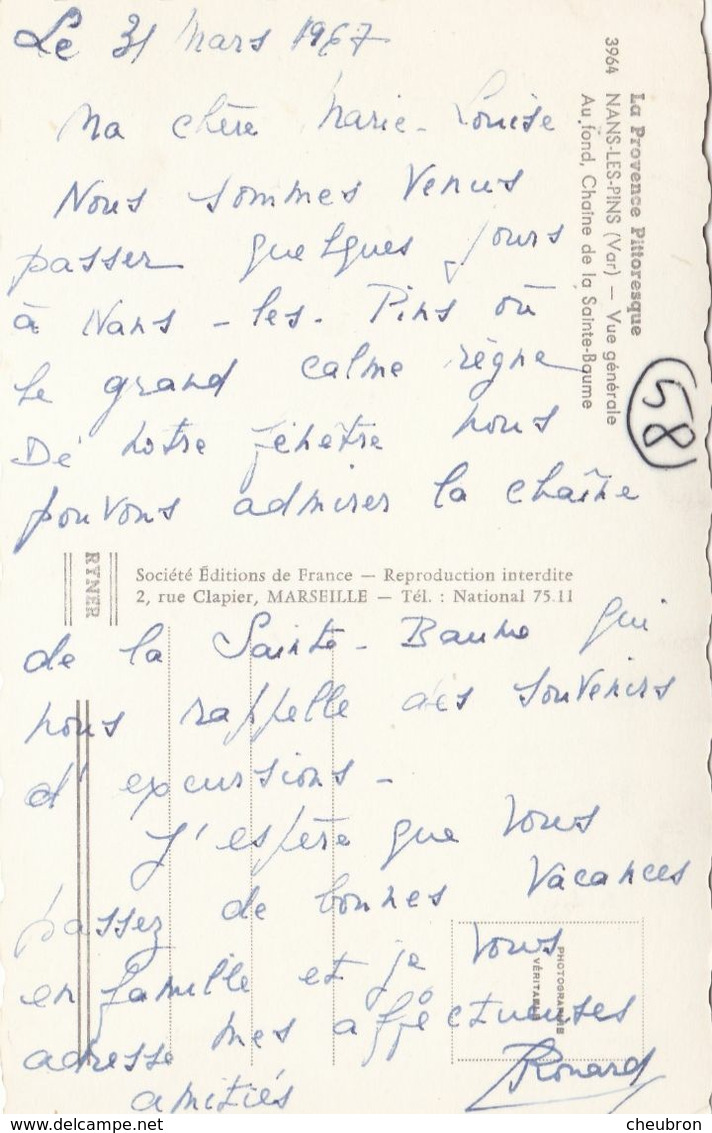 Le 31 Mars 1967
Ma chère Marie-Louise
Nous sommes venus
passer quelques jours
à Nans-les-Pins où
le grand calme règne
De notre fenêtre nous
pouvons admirer la chaîne
de la Sainte-Baume qui
nous rappelle des souvenirs
d'excursions -
J'espère que vous
passez de bonnes vacances
en famille et je vous
adresse mes affectueuses
amitiés
Ronard
La Provence Pittoresque
3964 NANS-LES-PINS (Var) — Vue générale
Au fond, Chaîne de la Sainte-Baume
58
RYNER
Société Éditions de France — Reproduction interdite
2, rue Clapier, MARSEILLE — Tél. : National 75.11
PHOTOGRAPHIE
VÉRITABLE
delcampe.net
cheubron